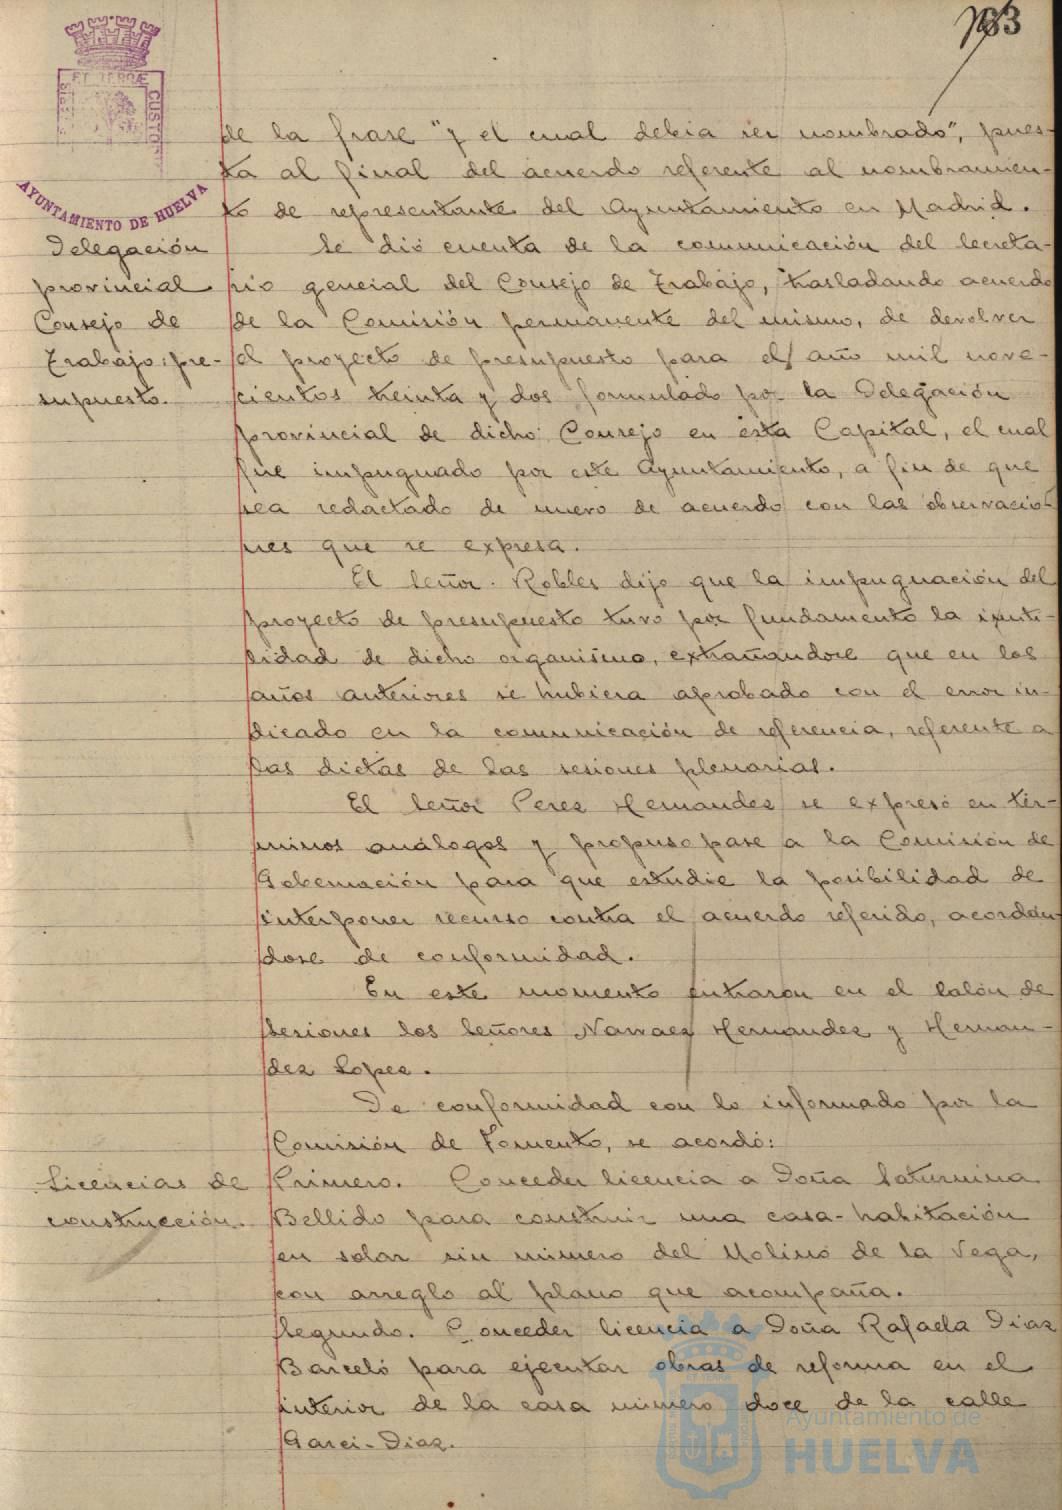 63
PORTUS MARIS
ET TERRÆ
CUSTODIA
AYUNTAMIENTO DE HUELVA
de la frase "y el cual debia ser nombrado", pues-
ta al final del acuerdo referente al nombramien-
to de representante del Ayuntamiento en Madrid.
Delegación
provincial
Consejo de
Trabajo: pre-
supuesto.
Se dió cuenta de la comunicación del Secreta-
rio general del Consejo de Trabajo, trasladando acuerdo
de la Comisión permanente del mismo, de devolver
el proyecto de presupuesto para el año mil nove-
cientos treinta y dos formulado por la Delegación
provincial de dicho Consejo en esta Capital, el cual
fue impugnado por este Ayuntamiento, a fin de que
sea redactado de nuevo de acuerdo con las observacio-
nes que se expresa.
El Señor Robles dijo que la impugnación del
proyecto de presupuesto tuvo por fundamento la inuti-
lidad de dicho organismo, extrañandose que en los
años anteriores se hubiera aprobado con el error in-
dicado en la comunicación de referencia, referente a
las dietas de las sesiones plenarias.
El Señor Perez Hernandez se expresó en tér-
minos análogos y propuso pase a la Comisión de
Gobernación para que estudie la posibilidad de
interponer recurso contra el acuerdo referido, acordán-
dose de conformidad.
En este momento entraron en el Salón de
Sesiones los Señores Narraez Hernandez y Hernan-
dez Lopez.
De conformidad con lo informado por la
Comisión de Fomento, se acordó:
Licencias de
construcción.
Primero. Conceder licencia a Doña Saturnina
Bellido para construir una casa-habitación
en solar sin número del Molino de la Vega,
con arreglo al plano que acompaña.
Segundo. Conceder licencia a Doña Rafaela Diaz
Barceló para ejecutar obras de reforma en el
interior de la casa número doce de la calle
Garci-Diaz.
Ayuntamiento de
HUELVA